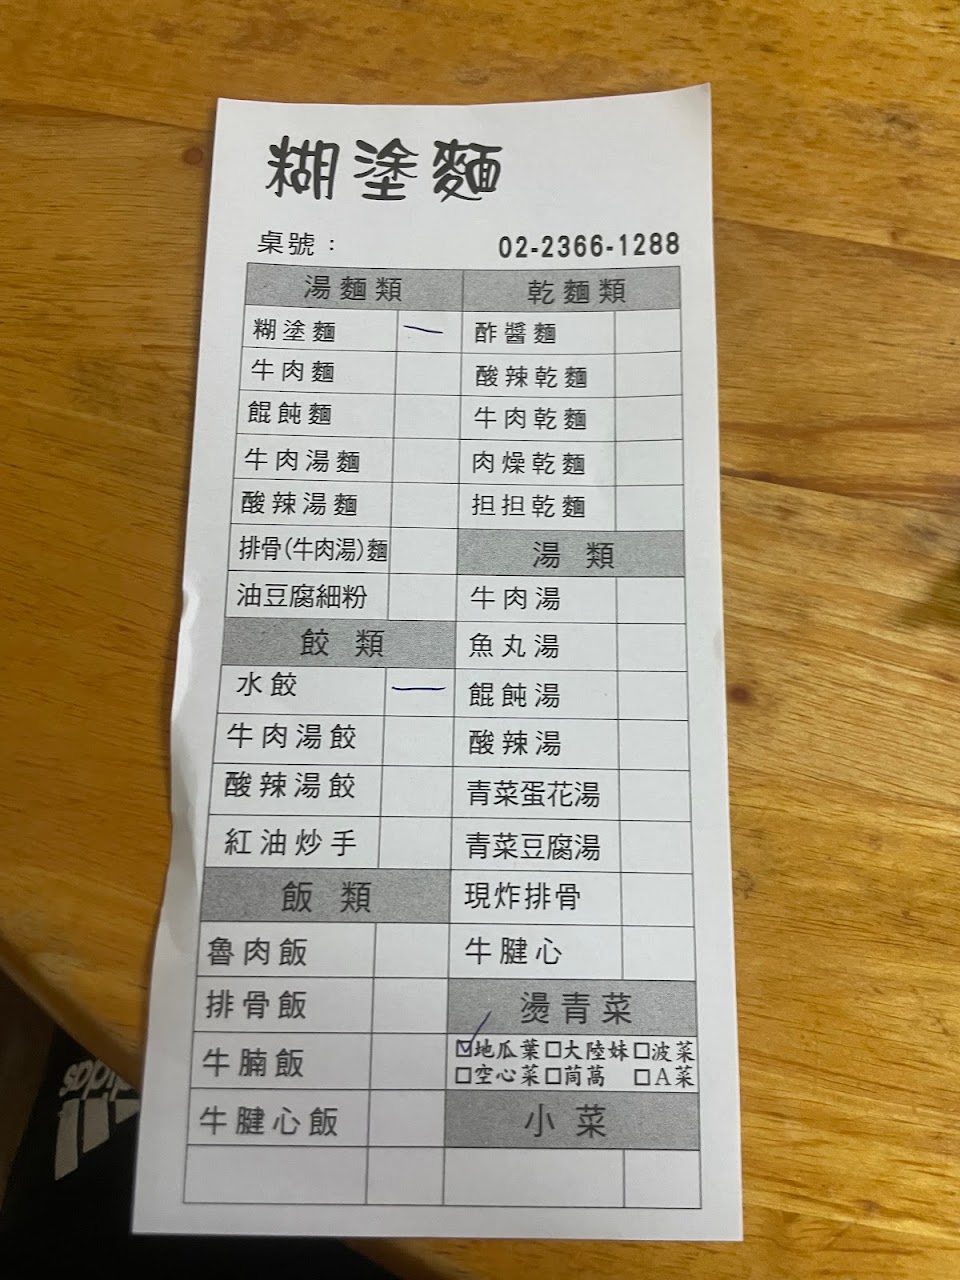 糊塗麵
桌號：
02-2366-1288
湯麵類
糊塗麵 一
牛肉麵
餛飩麵
牛肉湯麵
酸辣湯麵
排骨(牛肉湯)麵
油豆腐細粉
餃 類
水餃 一
牛肉湯餃
酸辣湯餃
紅油炒手
飯 類
魯肉飯
排骨飯
牛腩飯
牛腱心飯
乾麵類
酢醬麵
酸辣乾麵
牛肉乾麵
肉燥乾麵
担担乾麵
湯 類
牛肉湯
魚丸湯
餛飩湯
酸辣湯
青菜蛋花湯
青菜豆腐湯
現炸排骨
牛腱心
燙青菜
☑地瓜葉□大陸妹□波菜
□空心菜□茼萵 □A菜
小 菜
adidas